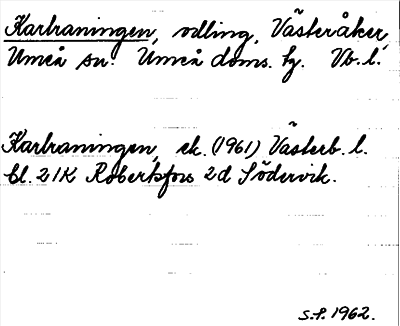 Karlraningen, odling, Västeråker,
Umeå sn. Umeå doms. tg. Vb. l.
Karlraningen, ek. (1961) Västerb. l.
bl. 21K Robertsfors 2d Södervik.
S.P. 1962.